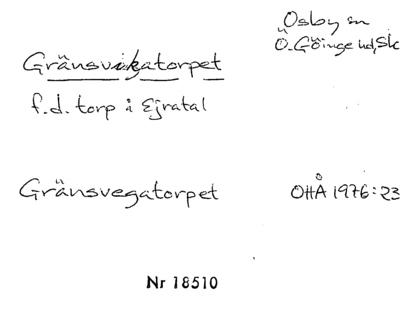 Osby sn
Ö. Göinge hd, Sk
Gränsvikatorpet
f.d. torp å Ejratal
Gränsvegatorpet
OHÅ 1976:23
Nr 18510